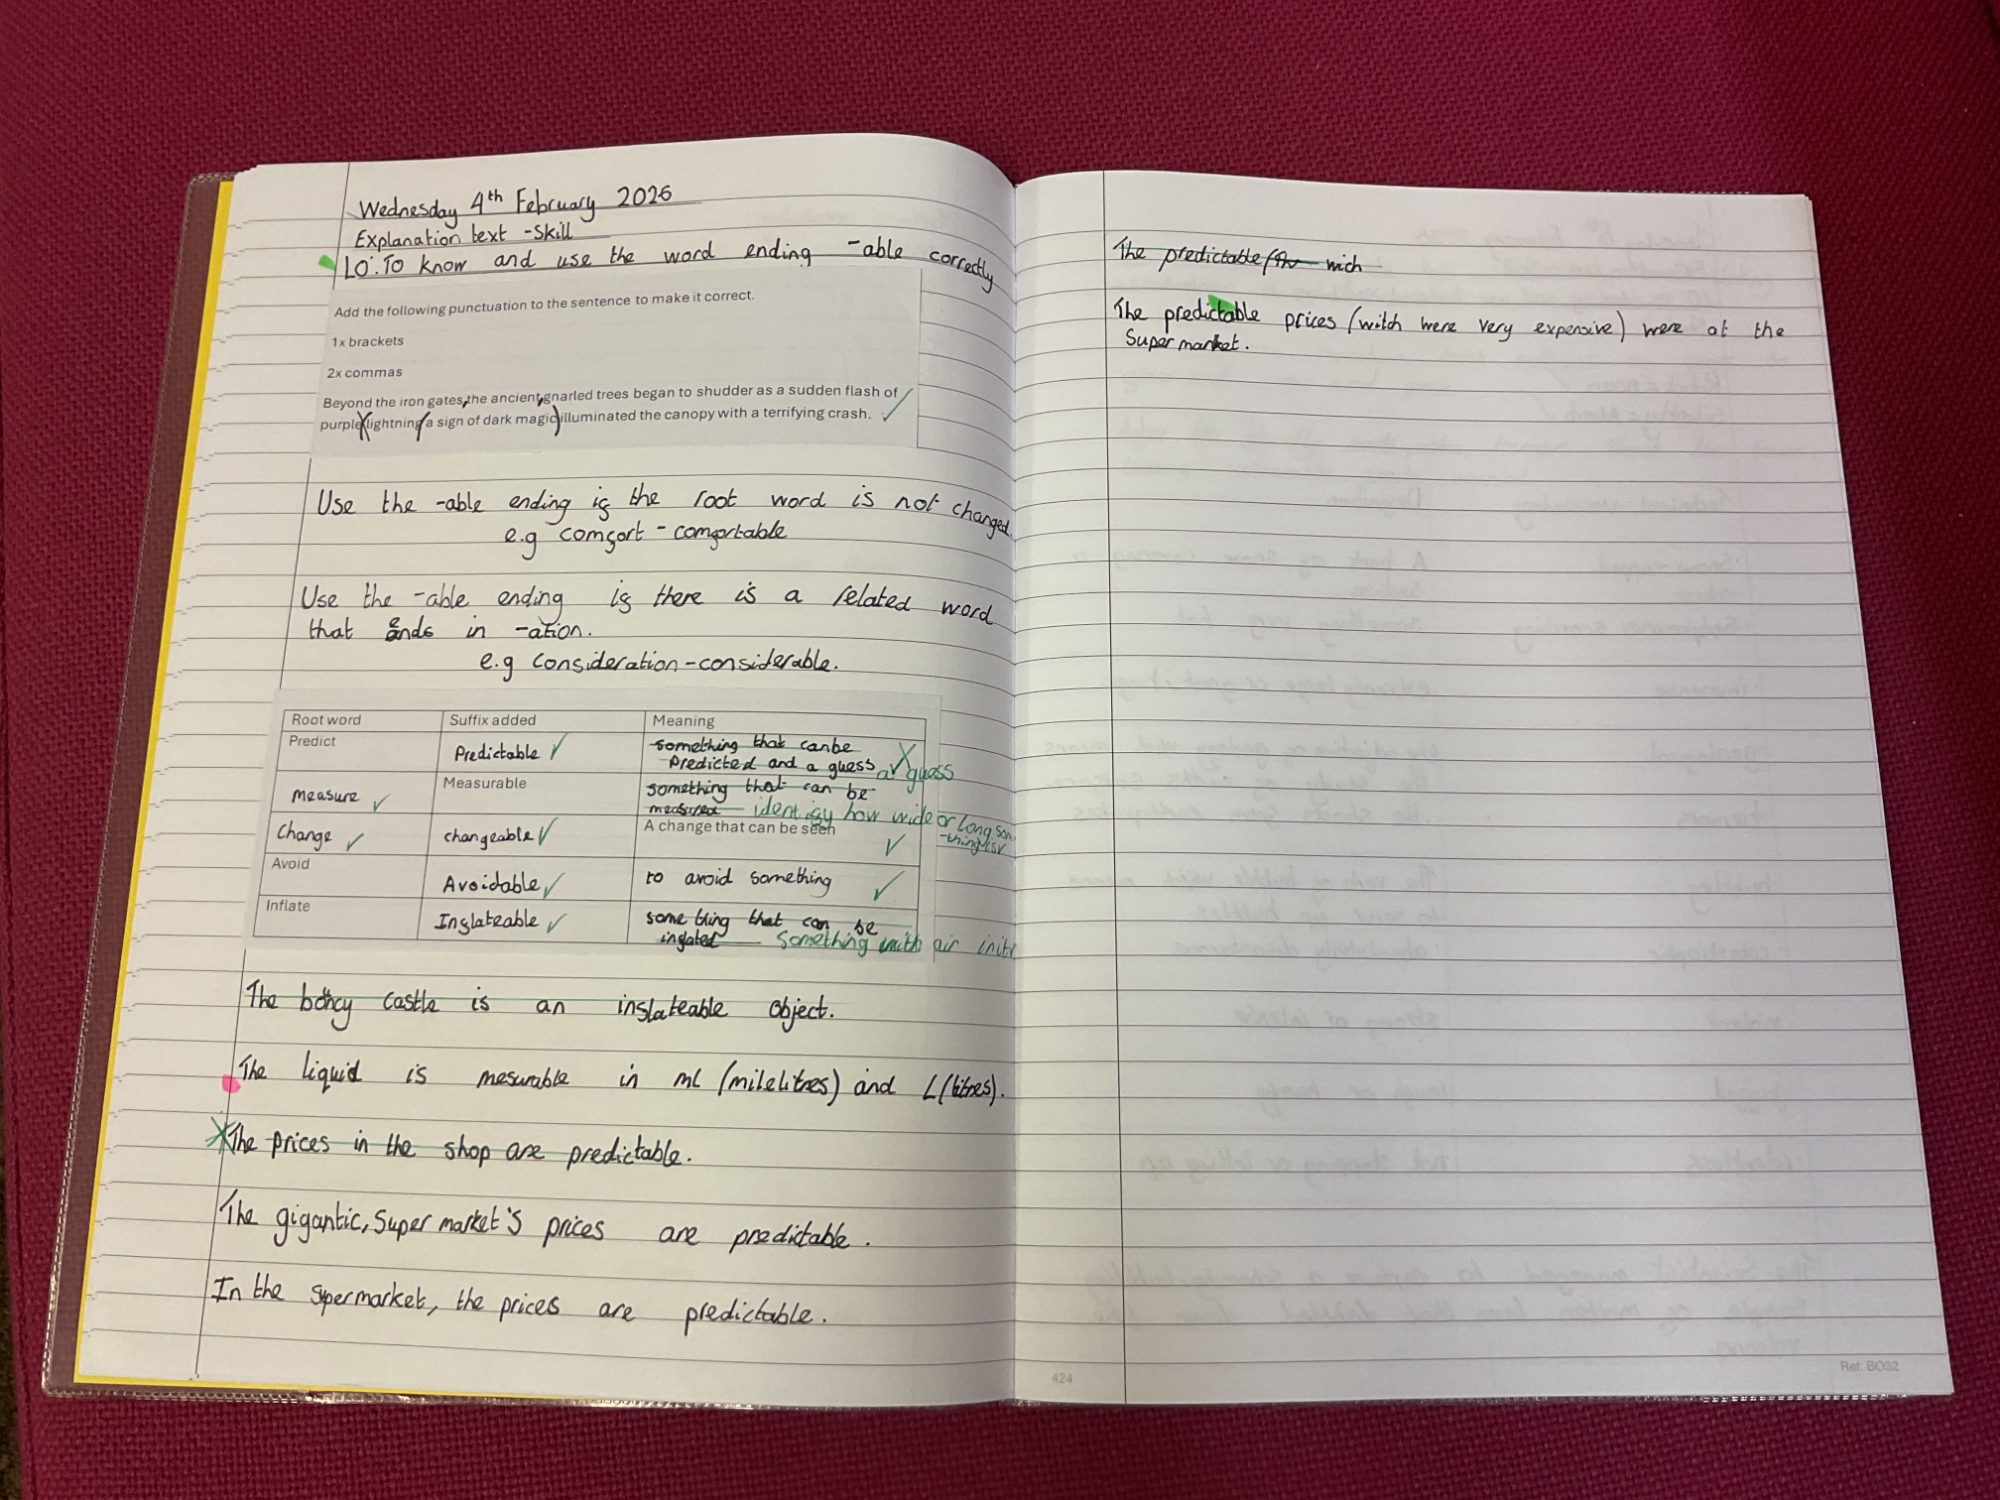 Wednesday 4th February 2026
Explanation text -Skill
LO: To know and use the word ending -able correctly
Add the following punctuation to the sentence to make it correct.
1x brackets
2x commas
Beyond the iron gates, the ancient, gnarled trees began to shudder as a sudden flash of
purple lightning (a sign of dark magic) illuminated the canopy with a terrifying crash.
Use the -able ending if the root word is not changed.
e.g comfort - comfortable
Use the -able ending if there is a related word
that ends in -ation.
e.g consideration-considerable.
Root word Suffix added Meaning
Predict Predictable something that canbe
Predicted and a guess a guess
measure Measurable something that can be
measured identify how wide or long som
-thing is
Change changeable A change that can be seen
Avoid Avoidable to avoid something
Inflate Inflateable something that can be
inflated Something with air in it
The boncy castle is an inflateable object.
The liquid is mesurable in ml (milelitres) and L (litres).
The prices in the shop are predictable.
The gigantic, Super market's prices are predictable.
In the supermarket, the prices are predictable.
The predictable wich
The predictable prices (witch were very expensive) were at the
Super market.
424
Ref: BO32